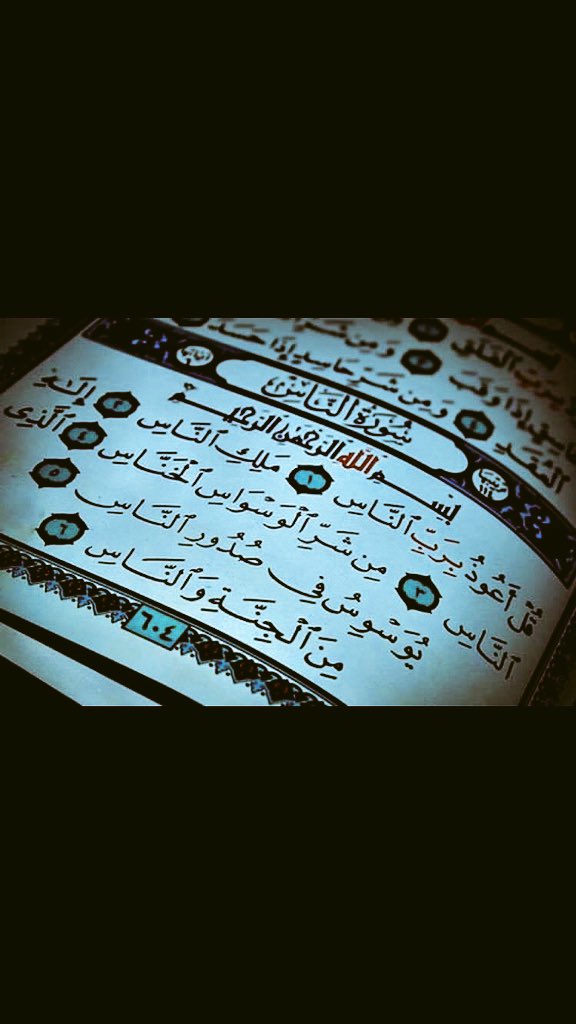 بِرَبِّ ٱلْفَلَقِ
إِذَا وَقَبَ
ٱلْعُقَدِ ٤ وَمِن شَرِّ حَاسِدٍ إِذَا حَسَدَ
سُورَةُ النَّاسِ
بِسْمِ ٱللَّهِ ٱلرَّحْمَٰنِ ٱلرَّحِيمِ
قُلْ أَعُوذُ بِرَبِّ ٱلنَّاسِ ١ مَلِكِ ٱلنَّاسِ ٢ إِلَٰهِ
ٱلنَّاسِ ٣ مِن شَرِّ ٱلْوَسْوَاسِ ٱلْخَنَّاسِ ٤ ٱلَّذِى
يُوَسْوِسُ فِى صُدُورِ ٱلنَّاسِ ٥
مِنَ ٱلْجِنَّةِ وَٱلنَّاسِ ٦
٦٠٤